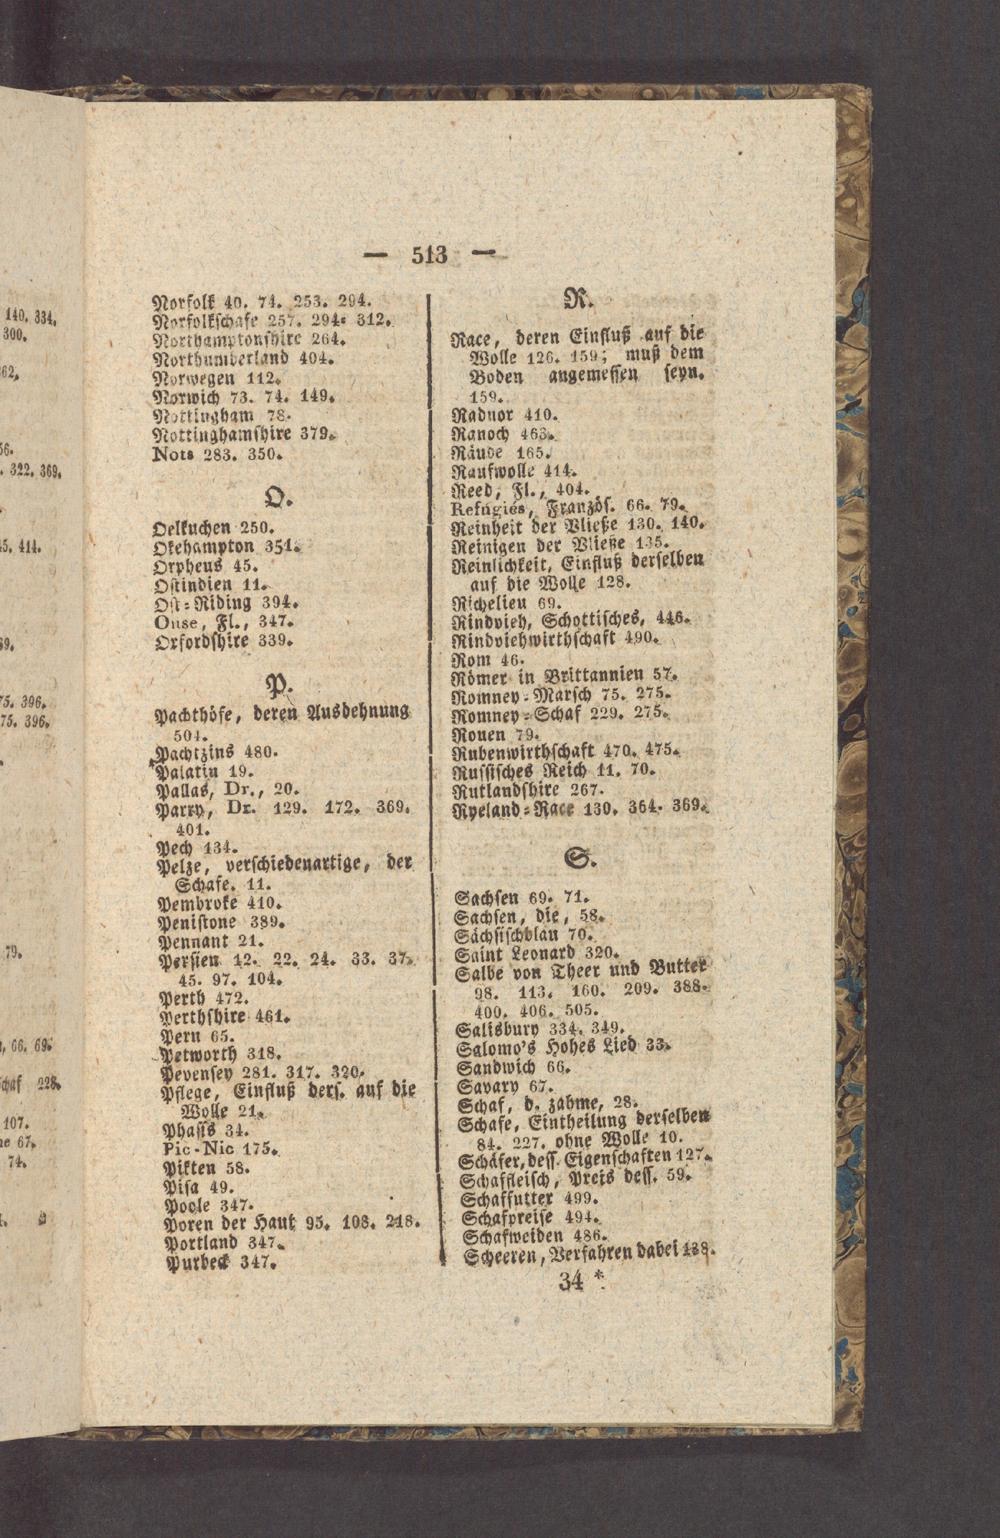 140. 334.
300.
62.
56.
. 322. 369.
5. 414.
69.
75. 396.
75. 396.
79.
, 66. 69.
chaf 228.
107.
ne 67.
74.
— 513 —
Norfolk 40. 74. 253. 294.
Norfolkschafe 257. 294. 312.
Northamptonshire 264.
Northumberland 404.
Norwegen 112.
Norwich 73. 74. 149.
Nottingham 78.
Nottinghamshire 379.
Nots 283. 350.
O.
Oelkuchen 250.
Okehampton 351.
Orpheus 45.
Ostindien 11.
Ost-Riding 394.
Ouse, Fl., 347.
Oxfordshire 339.
P.
Pachthöfe, deren Ausdehnung
504.
Pachtzins 480.
Palatin 19.
Pallas, Dr., 20.
Parry, Dr. 129. 172. 369.
401.
Pech 134.
Pelze, verschiedenartige, der
Schafe. 11.
Pembroke 410.
Penistone 389.
Pennant 21.
Persien 12. 22. 24. 33. 37.
45. 97. 104.
Perth 472.
Perthshire 461.
Peru 65.
Petworth 318.
Pevensey 281. 317. 320.
Pflege, Einfluß ders. auf die
Wolle 21.
Phasis 34.
Pic-Nic 175.
Pikten 58.
Pisa 49.
Poole 347.
Poren der Haut 95. 108. 218.
Portland 347.
Purbeck 347.
R.
Race, deren Einfluß auf die
Wolle 126. 159; muß dem
Boden angemessen seyn.
159.
Radnor 410.
Ranoch 463.
Räude 165.
Raufwolle 414.
Reed, Fl., 404.
Refugiés, Französ. 66. 79.
Reinheit der Vließe 130. 140.
Reinigen der Vließe 135.
Reinlichkeit, Einfluß derselben
auf die Wolle 128.
Richelieu 69.
Rindvieh, Schottisches, 446.
Rindviehwirthschaft 490.
Rom 46.
Römer in Brittannien 57.
Romney-Marsch 75. 275.
Romney-Schaf 229. 275.
Rouen 79.
Rubenwirthschaft 470. 475.
Russisches Reich 11. 70.
Rutlandshire 267.
Ryeland-Race 130. 364. 369.
S.
Sachsen 69. 71.
Sachsen, die, 58.
Sächsischblau 70.
Saint Leonard 320.
Salbe von Theer und Butter
98. 113. 160. 209. 388.
400. 406. 505.
Salisbury 334. 349.
Salomo's Hohes Lied 33.
Sandwich 66.
Savary 67.
Schaf, d. zahme, 28.
Schafe, Eintheilung derselben
84. 227. ohne Wolle 10.
Schäfer, dess. Eigenschaften 127.
Schaffleisch, Preis dess. 59.
Schaffutter 499.
Schafpreise 494.
Schafweiden 486.
Scheeren, Verfahren dabei 138.
34 *